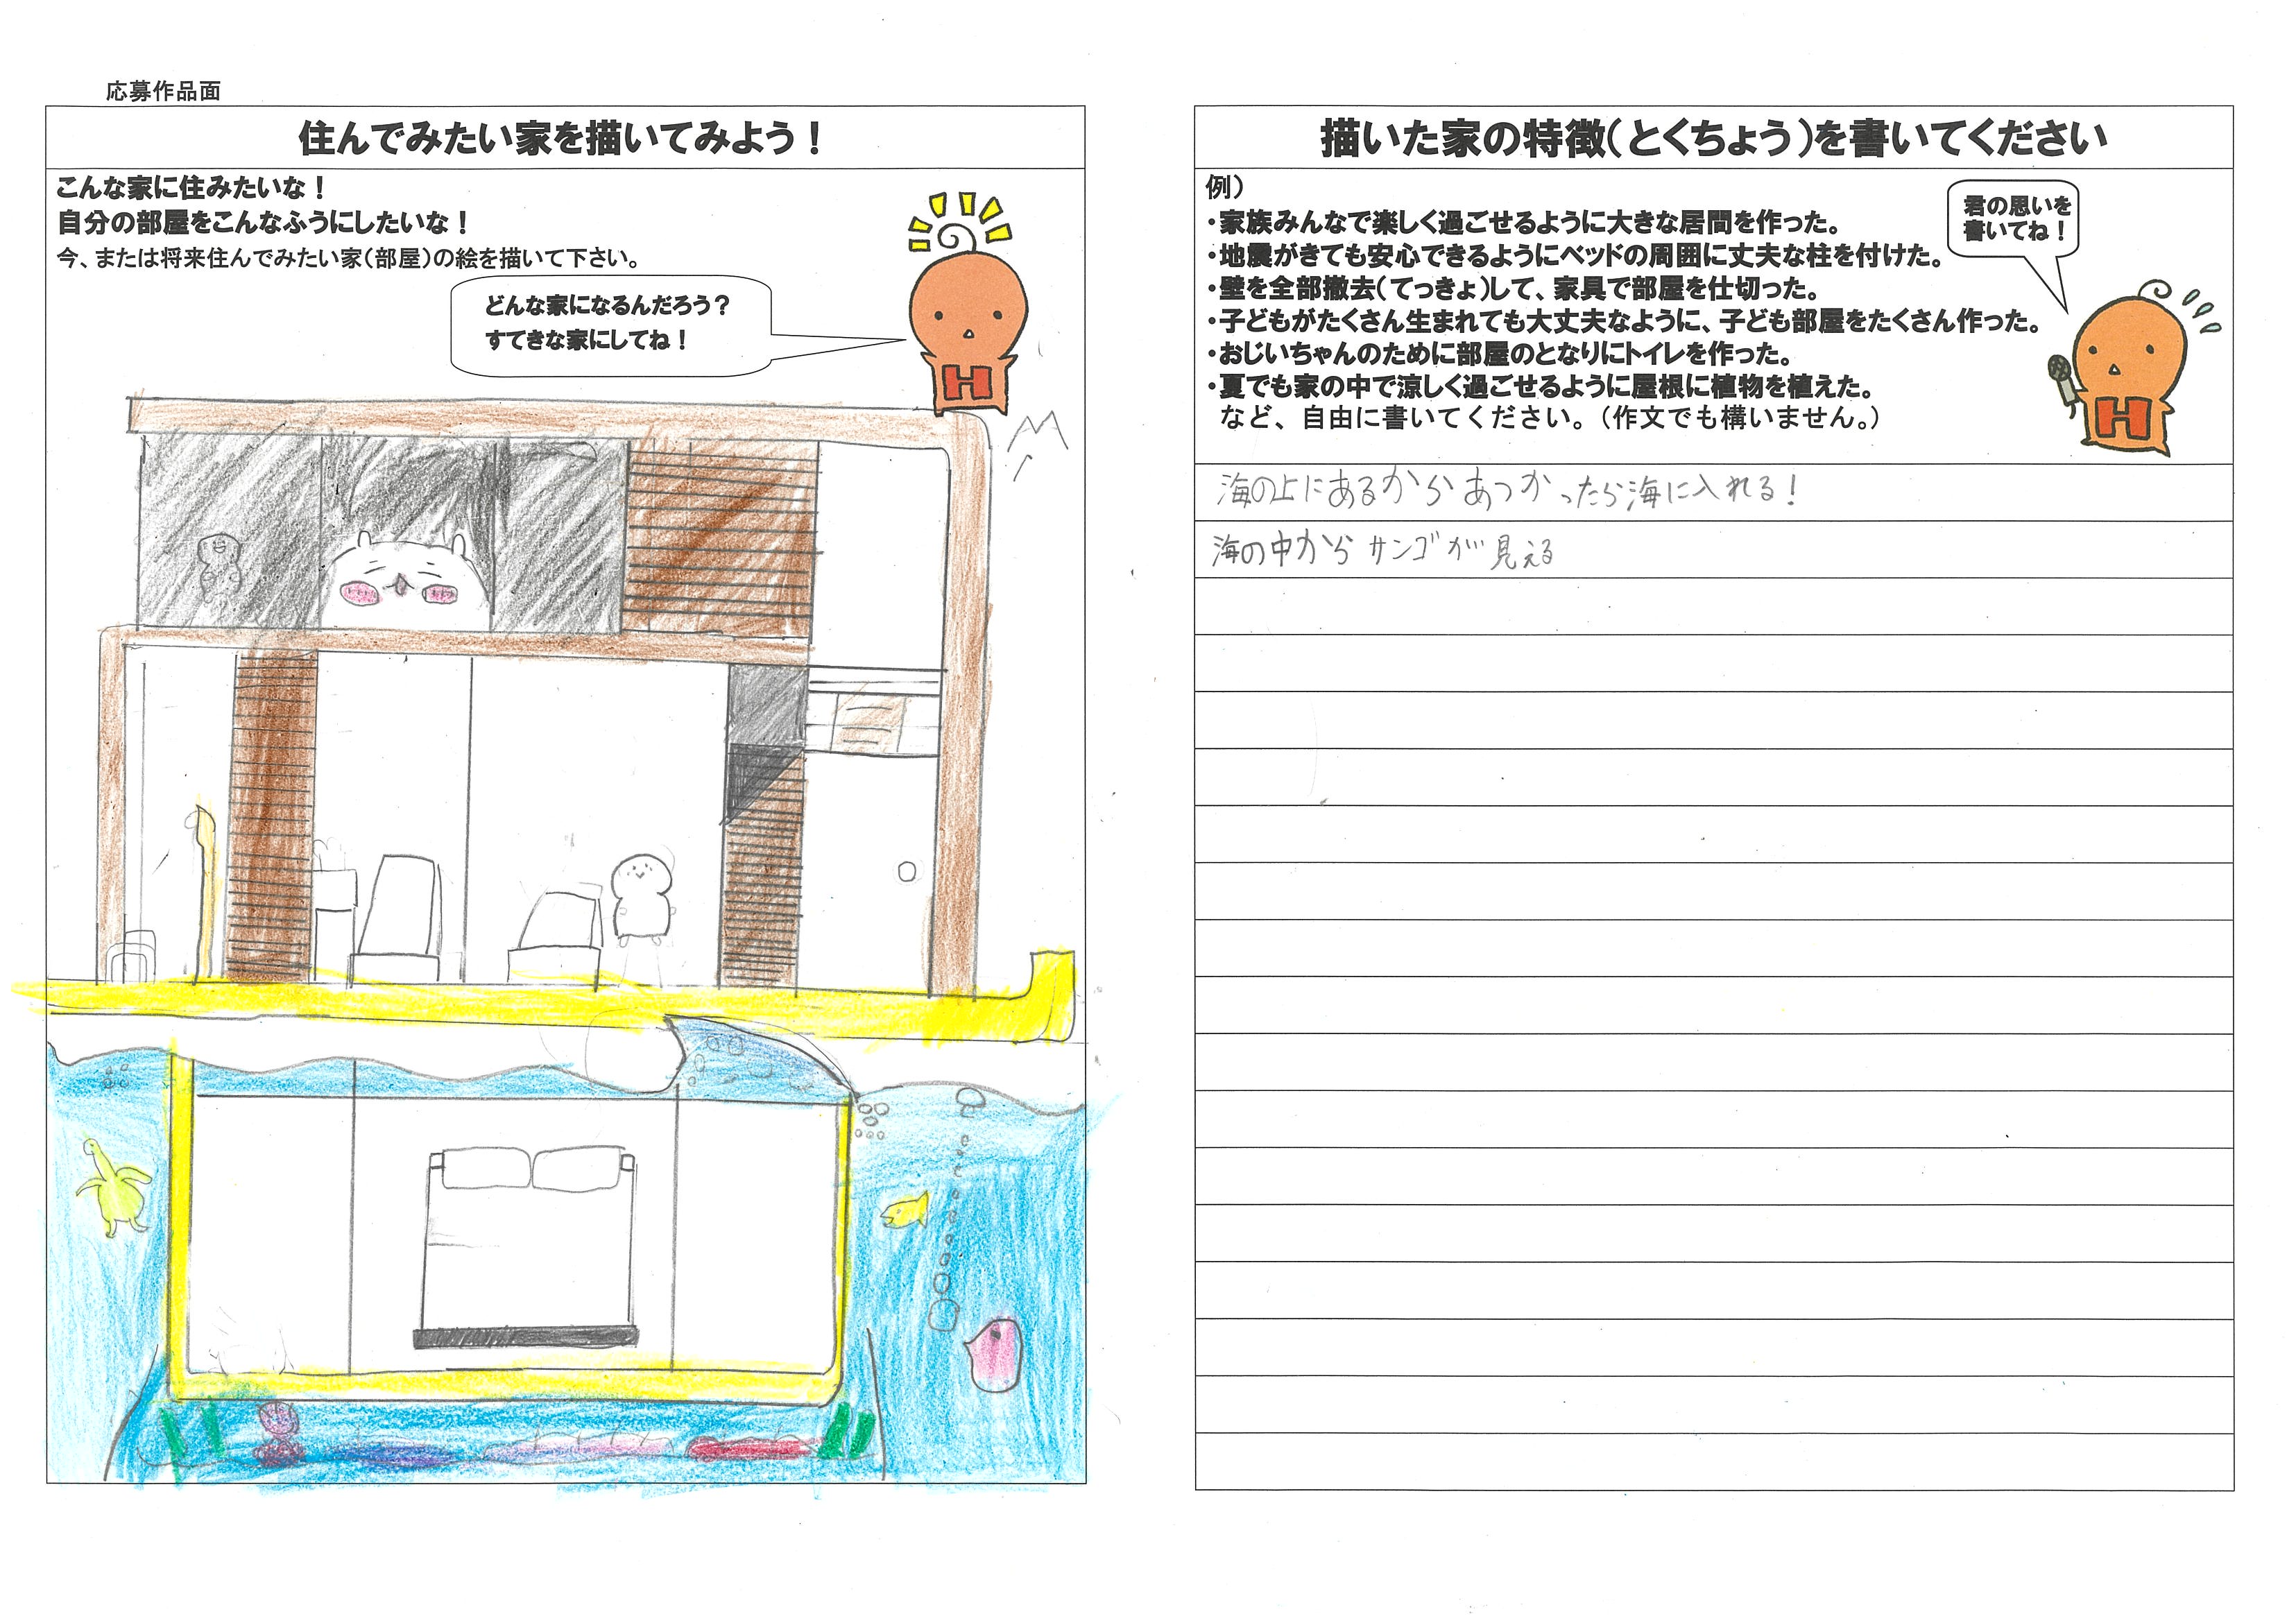 応募作品面
住んでみたい家を描いてみよう！
こんな家に住みたいな！
自分の部屋をこんなふうにしたいな！
今、または将来住んでみたい家（部屋）の絵を描いて下さい。
どんな家になるんだろう？
すてきな家にしてね！
H
描いた家の特徴（とくちょう）を書いてください
例）
・家族みんなで楽しく過ごせるように大きな居間を作った。
・地震がきても安心できるようにベッドの周囲に丈夫な柱を付けた。
・壁を全部撤去（てっきょ）して、家具で部屋を仕切った。
・子どもがたくさん生まれても大丈夫なように、子ども部屋をたくさん作った。
・おじいちゃんのために部屋のとなりにトイレを作った。
・夏でも家の中で涼しく過ごせるように屋根に植物を植えた。
など、自由に書いてください。（作文でも構いません。）
君の思いを
書いてね！
H
海の上にあるからあつかったら海に入れる！
海の中からサンゴが見える